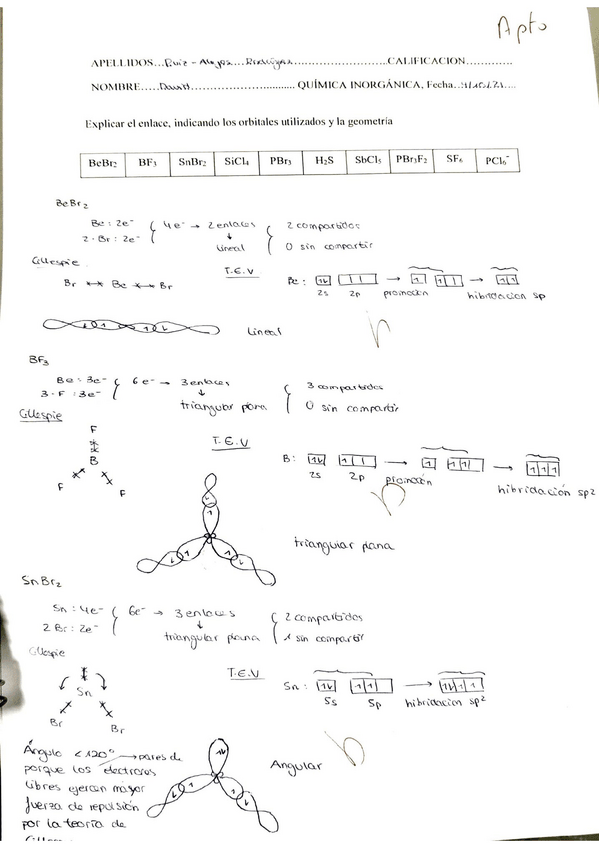 Apto
APELLIDOS...Ruiz - Alejos....Rodríguez...........................CALIFICACION.............
NOMBRE.....David............................. QUÍMICA INORGÁNICA, Fecha..
Explicar el enlace, indicando los orbitales utilizados y la geometría
BeBr₂ BF₃ SnBr₂ SiCl₄ PBr₃ H₂S SbCl₅ PBr₃F₂ SF₆ PCl₆⁻
BeBr₂
Be : 2e⁻ 4e⁻ → 2 enlaces 2 compartidos
2 · Br : 2e⁻ ↓ lineal 0 sin compartir
Gillespie T.E.V Be :
Br Be Br 2s 2p promoción hibridacion sp
Lineal
BF₃
Be : 3e⁻ 6e⁻ → 3 enlaces 3 compartidos
3 · F : 3e⁻ ↓ triangular plana 0 sin compartir
Gillespie
F T.E.V
B B :
F F 2s 2p promoción hibridación sp2
triangular plana
SnBr₂
Sn : 4e⁻ 6e⁻ → 3 enlaces 2 compartidos
2 Br : 2e⁻ ↓ triangular plana 1 sin compartir
Gillespie T.E.V
Sn Sn :
Br Br 5s 5p hibridacion sp²
Ángulo < 120° → pares de
porque los electrones Angular
libres ejercen mayor
fuerza de repulsión
por la teoría de